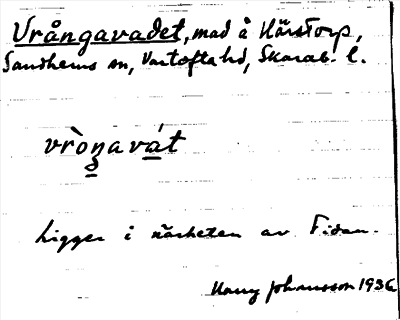 Vrångavadet, mad å Härstorp,
Sandhems sn, Vartofta hd, Skarab. l.
vrò̱ŋavá̱t
Ligger i närheten av Tidan.
Harry Johansson 1936